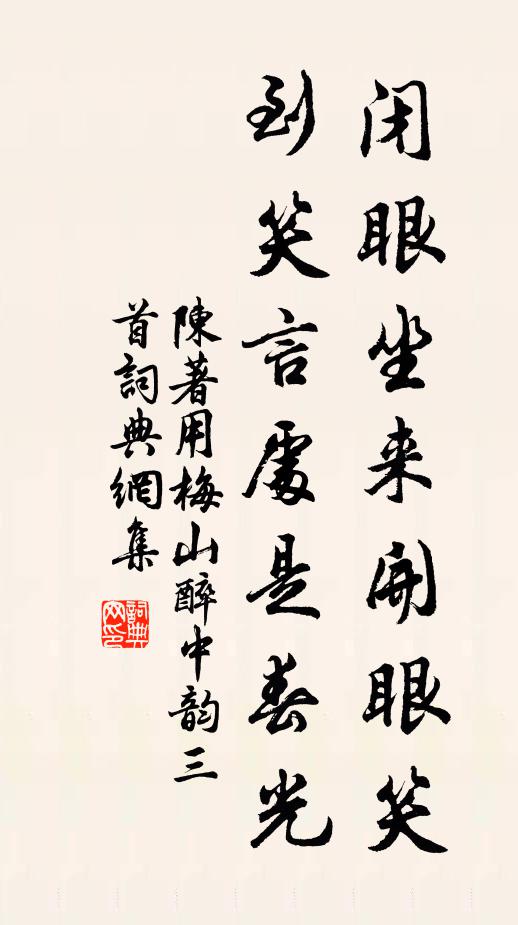 闭眼坐来开眼笑
到笑言處是春光
陳著用梅山醉中韵三
首詞典網集
詞典
网印